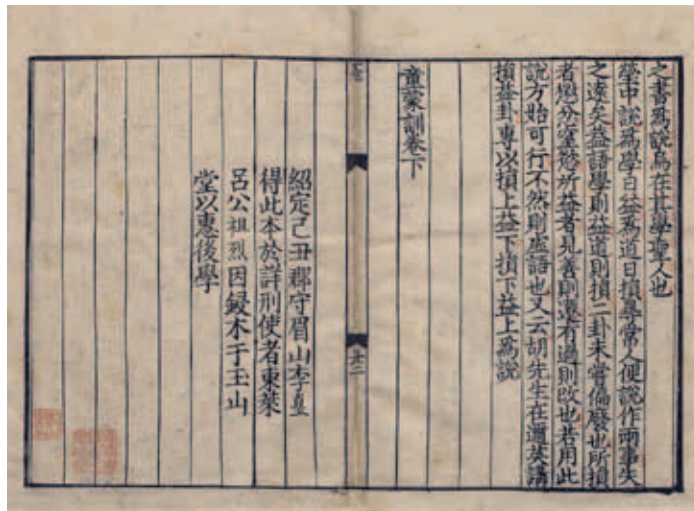 之書為說焉在其學聖人也
瑩中說為學日益為道日損尋常人便說作兩事失
之遠矣益語學則益道則損二卦未嘗偏廢也所損
者懲忿窒慾所益者見善則遷有過則改也若用此
說方始可行不然則虛語也又云胡先生在邇英講
損益卦專以損上益下損下益上為說
童蒙訓卷下
廿二
紹定己丑郡守眉山李𡌴
得此本於詳刑使者東萊
呂公祖烈因鋟木于玉山
堂以惠後學